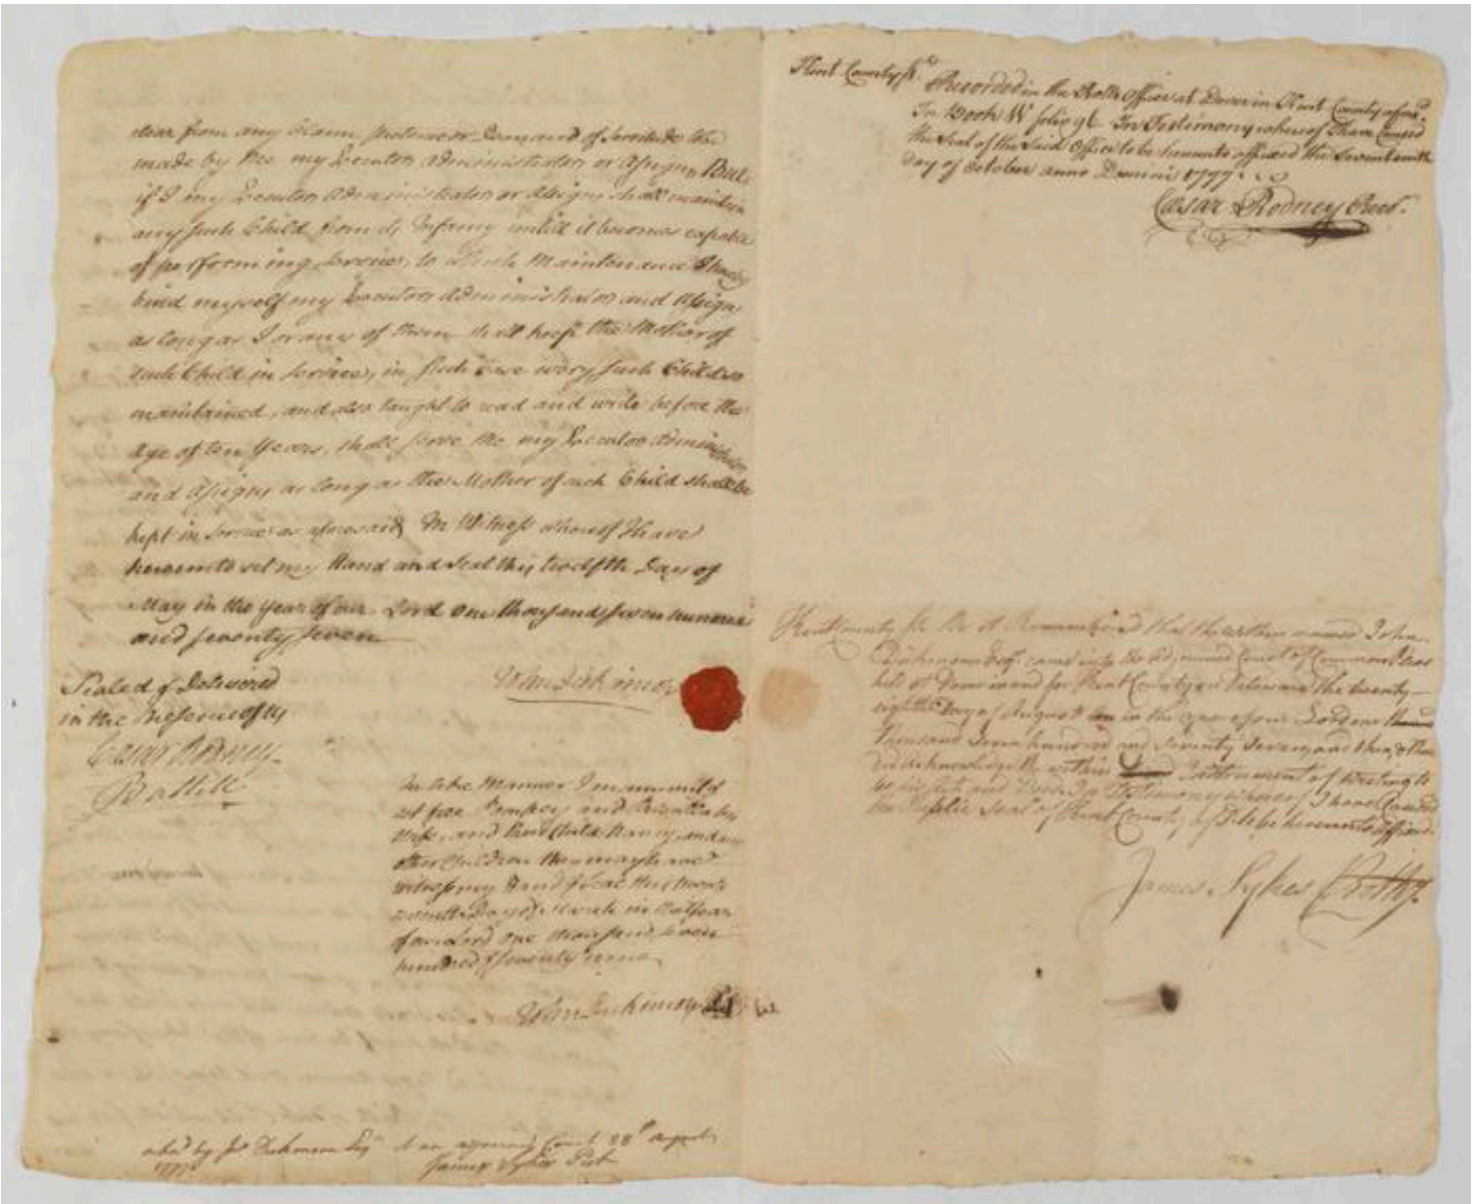 clear from any Claim pretence or Demand of Servitude to be
made by Me my Executors Administrators or Assigns But
if I my Executors Administrators or Assigns shall maintain
any such Child from its Infancy untill it becomes capable
of performing Service, to Which Maintenance I hereby
bind myself my Executors Administrators and Assigns
as long as I or any of them shall keep the Mother of
such Child in Service, in such Case every such Child so
maintained, and also taught to read and write before the
Age of ten Years, shall serve Me my Executors Administrators
and Assigns as long as the Mother of such Child shall be
kept in Service as aforesaid In Witness whereof I have
hereunto set my Hand and Seal this twelfth Day of
May in the Year of our Lord One thousand seven hundred
and seventy seven
Sealed & Delivered
in the Presence of Us
John Dickinson
Cesar Rodney
In like Manner I manumit &
set free Pompey and his
Wife, and their Child Nancy, and any
other Children they may have
witness my Hand & Seal this
Day of March in the Year
of our Lord One thousand seven
hundred & seventy nine
John Dickinson
by Jn Dickinson Esqr at an Court 28th August
1777
James Sykes
Kent County ss. Recorded in the Rolls Office at Dover in Kent County aforesd.
In Book W folio 91 In Testimony whereof I have caused
the Seal of the Said Office to be hereunto affixed the Seventeenth
day of October anno Domini 1777
Cesar Rodney Recr.
Kent County ss. Be it Remembered that the within named John
Dickinson Esqr. came into the Adjourned Court of Common Pleas
held at Dover in and for Kent County on Delaware the twenty
eighth Day of August in the year of our Lord one
thousand Seven hundred and Seventy Seven and then & there
did acknowledge the within Instrument of Writing to
be his Act and Deed. In Testimony whereof I have Caused
the Public Seal of Kent County to be hereunto affixed.
James Sykes Prothy.